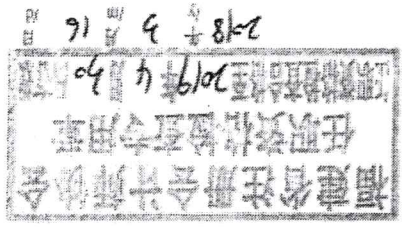 福建省注册会计师协会
任职资格检查专用章
2019年4月30日
2018年3月16日
/y /m /d